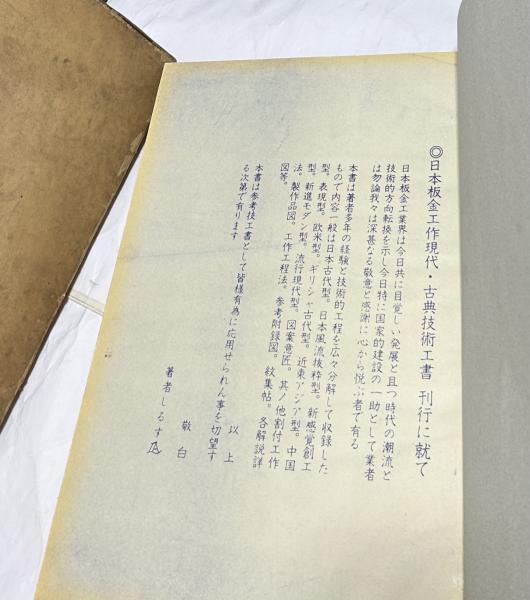 ◎日本板金工作現代・古典技術工書 刊行に就て
日本板金工業界は今日共に目覚しい発展と且つ時代の潮流と
技術的方向転換を示し今日特に国家的建設の一助として業者
は勿論我々は深甚なる敬意と感謝に心から悦ぶ者で有る
本書は著者多年の経験と技術的工程を広々分解して収録した
もので内容一般は日本古代型。日本風流抜粋型。新感覚創工
型。表現型。欧米型。ギリシャ古代型。近東アジア型。中国
型。新進モダン型。流行現代型。図案意匠。其ノ他割付工作
法。製作品図。工作工程法。参考附録図。紋集帖。各解説詳
図等。
本書は参考技工書として皆様有為に応用せられん事を切望す
る次第で有ります
以上
敬白
著者しるす